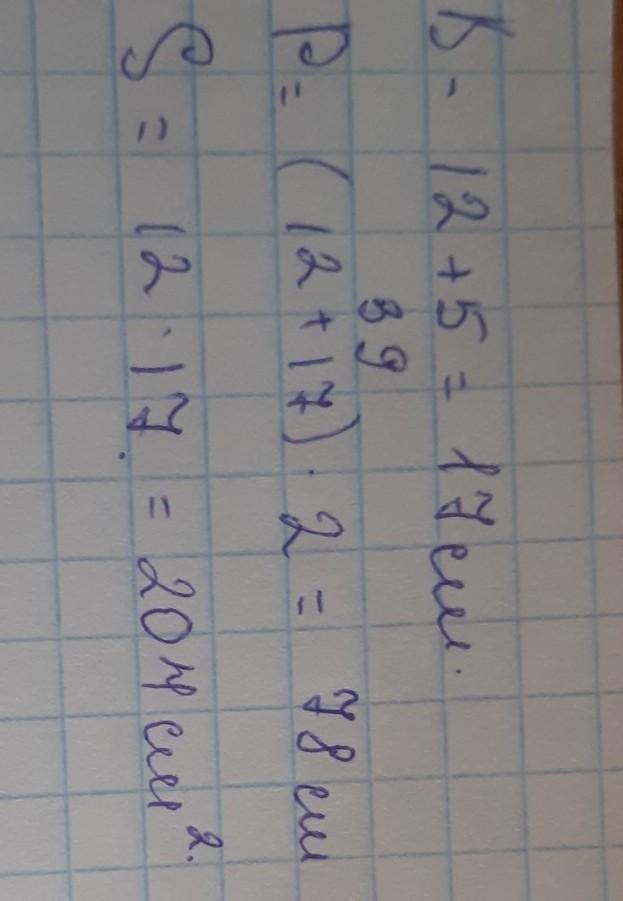 b - 12 + 5 = 17 см.
39
P = (12 + 17) · 2 = 78 см
S = 12 · 17 = 204 см².